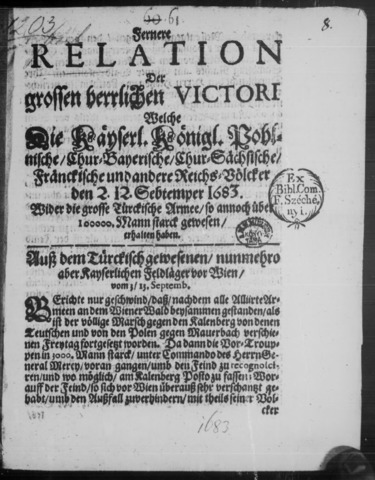 1203
60 61
8.
Fernere
RELATION
Der
grossen herrlichen VICTORI
Welche
Die Käyserl. Königl. Pohl-
nische/Chur-Bayerische/Chur-Sächsische/
Fränckische und andere Reichs-Völcker
den 2. 12. Sebtemper 1683.
Wider die grosse Türckische Armee/so annoch über
100000. Mann starck gewesen/
erhalten haben.
Ex
Bibl. Com.
F. Széché,
nyi.
Auß dem Türckisch gewesenen/ nunmehro
aber Kayserlichen Feldläger vor Wien/
vom 3/ 13. Septemb.
Berichte nur geschwind/daß/nachdem alle Allirte Ar-
meen an dem Wiener Wald beysammen gestanden/als
ist der völlige Marsch gegen den Kalenberg von denen
Teutschen und von den Polen gegen Mauerbach verschie-
nen Freytag fortgesetzt worden. Da dann die Vor-Troup-
pen in 3000. Mann starck/ unter Commando des Herrn Ge-
neral Mercy/voran gangen/umb den Feind zu recognosci-
ren/und wo möglich/ am Kalenberg Posto zu fassen: Wor-
auff der Feind/ so sich vor Wien überauß sehr verschantzt ge-
habt/umb den Außfall zuverhindern/ mit theils seiner Völ-
cker
1683